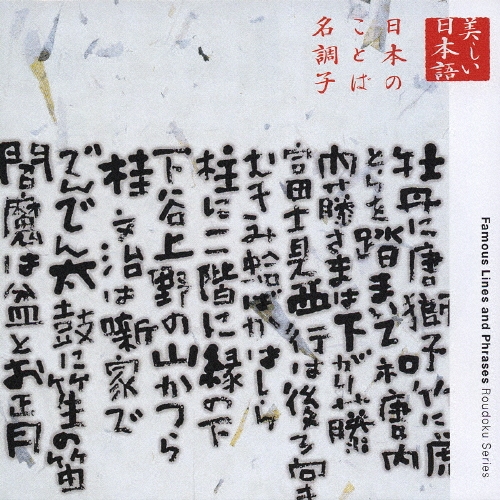 美しい
日本語
日本の
ことば
名調子
牡丹に唐獅子竹に虎
とらを踏まいて和唐内
内藤さまは下がり藤
富士見西行は後ろ向き
むきみ蛤ばかはしら
柱に二階に縁の下
下谷上野の山かつら
桂文治は噺家で
でんでん太鼓に笙の笛
閻魔は盆とお正月
Famous Lines and Phrases Roudoku Series